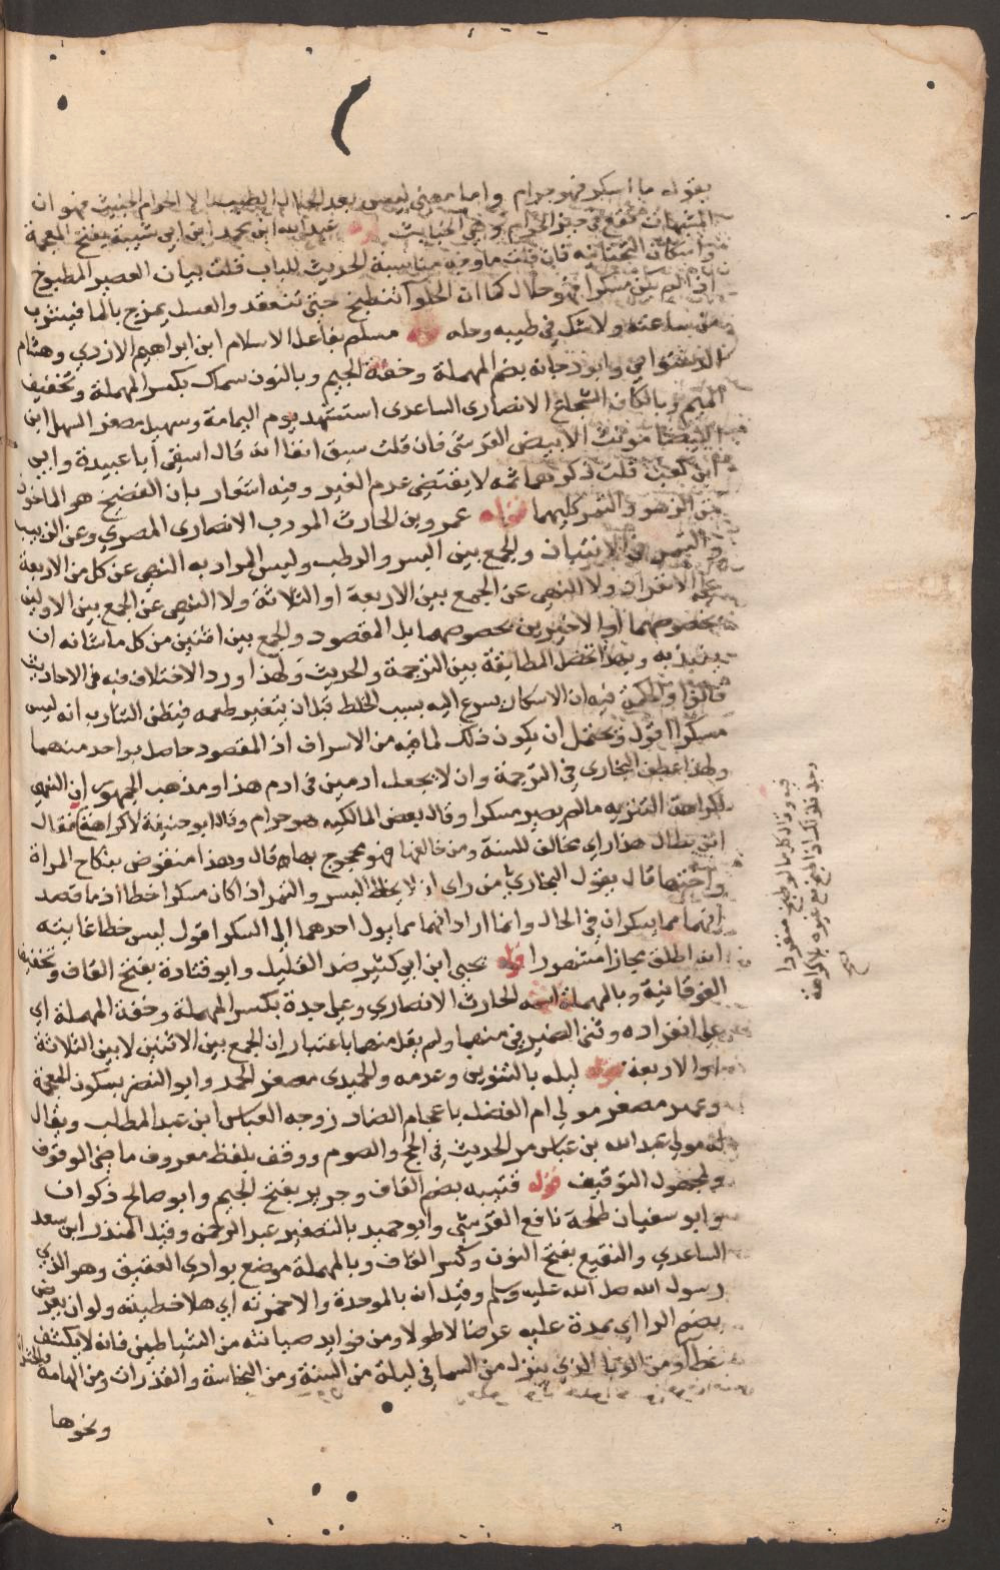 بقوله ما اسكر فهو حرام واما معنى ليس بعد الحلال الطيب الا الحرام الخبيث فهو ان
المشبهات تقع في حيز الحرام وهي الخبايث قوله عبد الله ابن محمد ابن ابي شيبة بفتح المعجمة
واسكان التحتانية فان قلت ما وجه مناسبة الحديث للباب قلت بيان العصير المطبوخ
اذا لم يكن مسكرا فهو حلال كما ان الحلوا تنطبخ حتى تنعقد والعسل يمزج بالما فيشرب
من ساعته ولا شك في طيبه وحله قوله مسلم بفاعل الاسلام ابن ابراهيم الازدي وهشام
الدستوائي وابو دجانة بضم المهملة وخفة الجيم وبالنون سماك بكسر المهملة وتخفيف
الميم وبالكاف الشجاع الانصاري الساعدي استشهد يوم اليمامة وسهيل مصغر السهل ابن
البيضا مونث الابيض القرشي فان قلت سبق انفا انه قال اسقي ابا عبيدة وابي
ابن كعب قلت ذكرهما ثمه لا يقتضي عدم الغير وفيه اشعار بان الفضيخ هو الماخوذ
من الزهو والتمر كليهما قوله عمرو بن الحارث المودب الانصاري المصري وعن الزبيب
والتمر في الانتباذ والجمع بين البسر والرطب وليس المراد به النهي عن كل من الاربعة
على الانفراد ولا النهي عن الجمع بين الاربعة او الثلاثة ولا النهي عن الجمع بين الاولين
بخصوصهما او الاخيرين بخصوصهما بل المقصود والجمع بين اثنين من كل ما شانه ان
ينتبذ به وبهذا تحصل المطابقة بين الترجمة والحديث ولهذا ورد الاختلاف فيه في الاحاديث
قالوا والحكمة فيه ان الاسكار يسرع اليه بسبب الخلط قبل ان يتغير طعمه فيظن الشارب انه ليس
مسكرا اقول ويحتمل ان يكون ذلك لما فيه من الاسراف اذ المقصود حاصل بواحد منهما
ولهذا عطف البخاري في الترجمة وان لا يجعل ادمين في ادم هذا ومذهب الجمهور ان النهي
لكراهة التنزيه ما لم يصير مسكرا وقال بعض المالكيه هو حرام وقال ابو حنيفة لا كراهة فقال
ابن بطال هذا راي مخالف للسنة ومن خالفها فهو محجوج بها قال وهذا منقوض بنكاح المراة
واختها قال بقول البخاري من راى ان لا يخلط البسر والتمر اذا كان مسكرا خطا اذ ما قصد
انهما مما يسكران في الحال وانما اراد انهما مما يول احدهما الى السكر اقول ليس خطا غايته
انه اطلق مجازا مشهورا قوله يحيى ابن ابي كثير ضد القليل وابو قتادة بفتح القاف وتخفيف
الفوقانية وبالمهملة اسمه الحارث الانصاري وعلى حدة بكسر المهملة وخفة المهملة اي
على انفراده وثنى الضمير في منهما ولم يقل منها باعتبار ان الجمع بين الاثنين لا بين الثلاثة
او الاربعة قوله ليله بالتنوين وعدمه والحميدي مصغر الحمد وابو النضر بسكون المعجمة
وعمير مصغر مولى ام الفضل باعجام الضاد زوجه العباس ابن عبد المطلب ويقال
له مولى عبد الله بن عباس مر الحديث في الحج والصوم ووقف بلفظ معروف ماضي الوقوف
ولمجهول التوقيف قوله قتيبه بضم القاف وجرير بفتح الجيم وابو صالح ذكوان
وابو سفيان طلحة نافع القرشي وابو حميد بالتصغير عبد الرحمن وقيل المنذر ابن سعد
الساعدي والنقيع بفتح النون وكسر القاف وبالمهملة موضع بوادي العقيق وهو الذي
رسول الله صلى الله عليه وسلم وقيل انه بالموحدة والا خمرته اي هلا غطيته ولو ان يعرض
بضم الرا اي يمدة عليه عرضا لا طولا ومن فوايد صيانته من الشياطين فانه لا يكشف
غطا ومن الوبا الذي ينزل من السما في ليلة من السنة ومن النجاسة والقذرات ومن الهامة والحشرات
ونحوها
فيه وقال كل ما لو طبخ منفردا
حل فكذلك اذا طبخ مع غيره بلا كراهة
صح